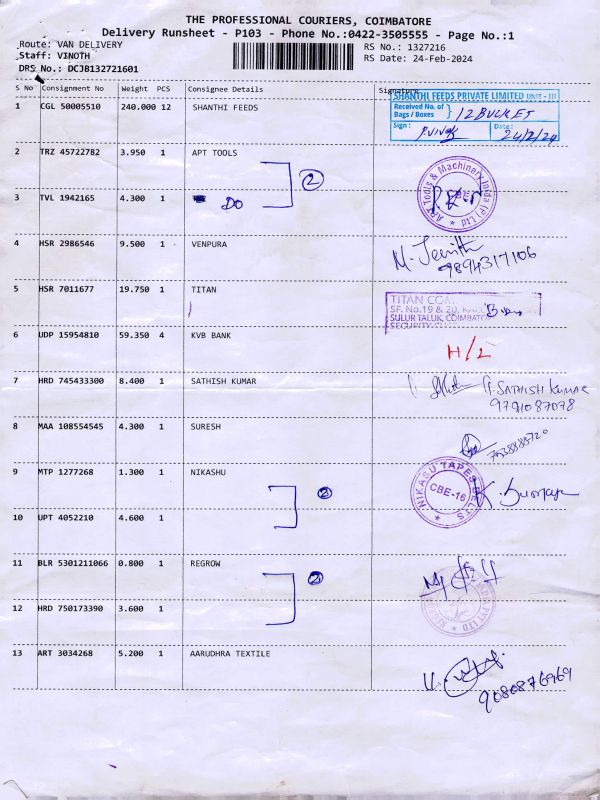 THE PROFESSIONAL COURIERS, COIMBATORE
Delivery Runsheet - P103 - Phone No.:0422-3505555 - Page No.:1
Route: VAN DELIVERY
RS No.: 1327216
Staff: VINOTH
RS Date: 24-Feb-2024
DRS No.: DCJB132721601
S No Consignment No Weight PCS Consignee Details Signature
1 CGL 50005510 240.000 12 SHANTHI FEEDS
SHANTHI FEEDS PRIVATE LIMITED UNIT - III
Received No. of Bags / Boxes } 12 BUCKET
Sign : Date : 24/2/24
2 TRZ 45722782 3.950 1 APT TOOLS
2
APT Tools & Machinery India (P) Ltd
3 TVL 1942165 4.300 1 DO
4 HSR 2986546 9.500 1 VENPURA
M. 9894317106
5 HSR 7011677 19.750 1 TITAN
TITAN COM
SF. No.19 & 20,
SULUR TALUK, COIMBATO
SECURITY
6 UDP 15954810 59.350 4 KVB BANK
H/L
7 HRD 745433300 8.400 1 SATHISH KUMAR
G. SATHISH KUMAR
9791087078
8 MAA 108554545 4.300 1 SURESH
9 MTP 1277268 1.300 1 NIKASHU
NIKASU TAPES BELTS
CBE-16
K. Sumaya
2
10 UPT 4052210 4.600 1
11 BLR 5301211066 0.800 1 REGROW
2
12 HRD 750173390 3.600 1
PVT LTD
13 ART 3034268 5.200 1 AARUDHRA TEXTILE
9080876969